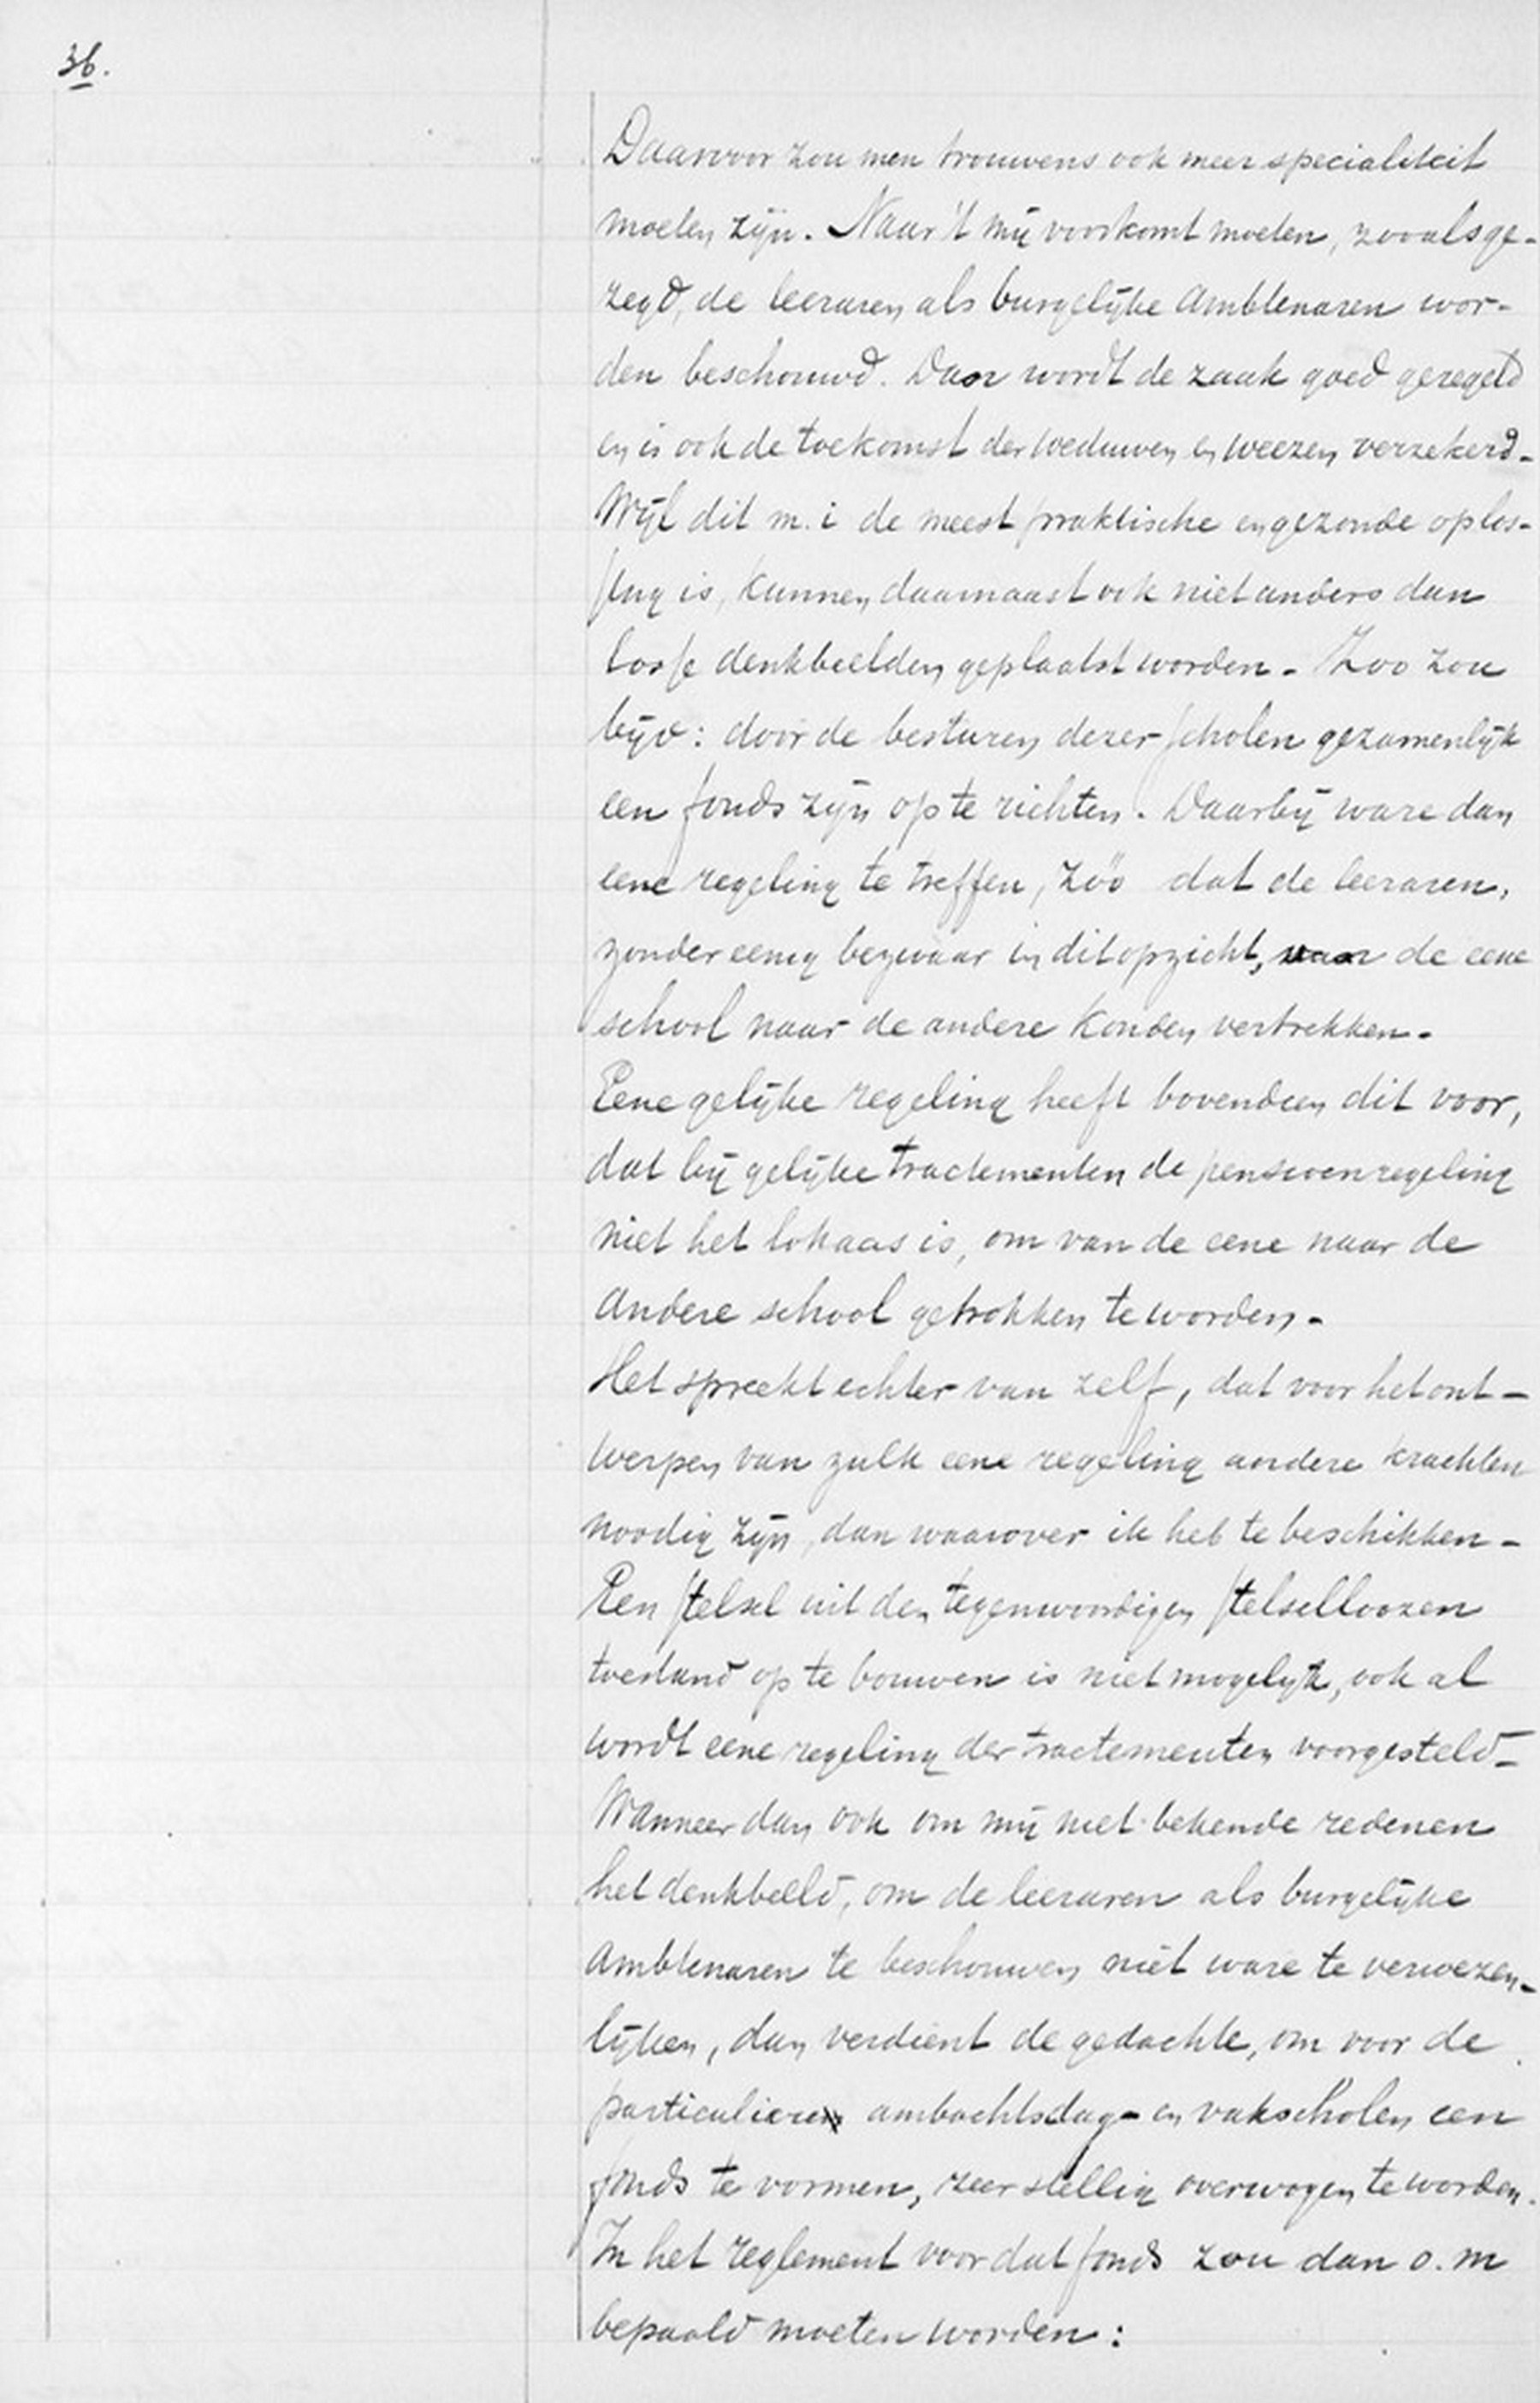 36.
Daarvoor zou men trouwens ook meer specialiteit
moeten zijn. Naar 't mij voorkomt moeten, zooals ge-
zegd, de leeraren als burgelijke ambtenaren wor-
den beschouwd. Daar wordt de zaak goed geregeld
en is ook de toekomst der weduwen en weezen verzekerd.
Wijl dit m. i de meest praktische en gezonde oplos-
sing is, kunnen daarnaast ook niet anders dan
losse denkbeelden geplaatst worden. Zoo zou
bijv: door de besturen dezer scholen gezamenlijk
een fonds zijn op te richten. Daarbij ware dan
eene regeling te treffen, zóó dat de leeraren,
zonder eenig bezwaar in dit opzicht, van de eene
school naar de andere konden vertrekken.
Eene gelijke regeling heeft bovendien dit voor,
dat bij gelijke tractementen de pensioenregeling
niet het lokaas is, om van de eene naar de
andere school getrokken te worden.
Het spreekt echter van zelf, dat voor het ont-
werpen van zulk eene regeling andere krachten
noodig zijn, dan waarover ik heb te beschikken.
Een stelsel uit den tegenwoordigen stelselloozen
toestand op te bouwen is niet mogelijk, ook al
wordt eene regeling der tractementen voorgesteld.
Wanneer dan ook om mij niet bekende redenen
het denkbeeld, om de leeraren als burgelijke
ambtenaren te beschouwen niet ware te verwezen-
lijken, dan verdient de gedachte, om voor de
particuliere ambachtsdag- en vakscholen een
fonds te vormen, zeer stellig overwogen te worden.
In het reglement voor dat fonds zou dan o. m
bepaald moeten worden: